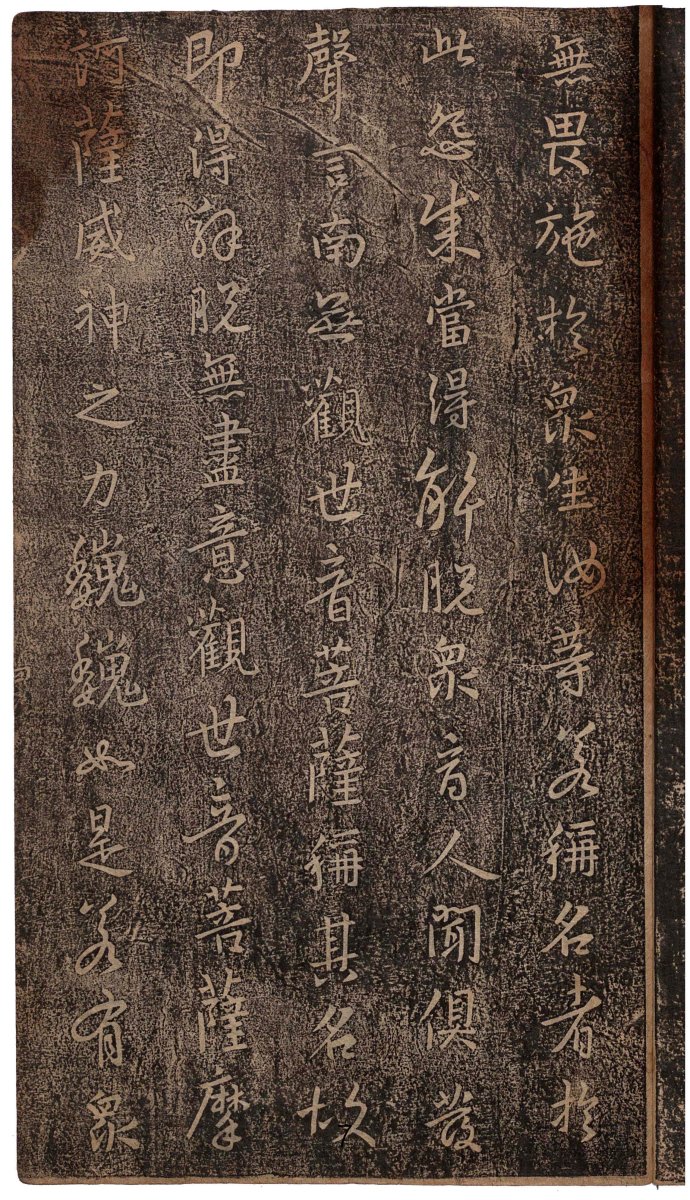 無畏施於眾生汝等若稱名者於
此怨賊當得解脫眾商人聞俱發
聲言南無觀世音菩薩稱其名故
即得解脫無盡意觀世音菩薩摩
訶薩威神之力巍巍如是若有眾